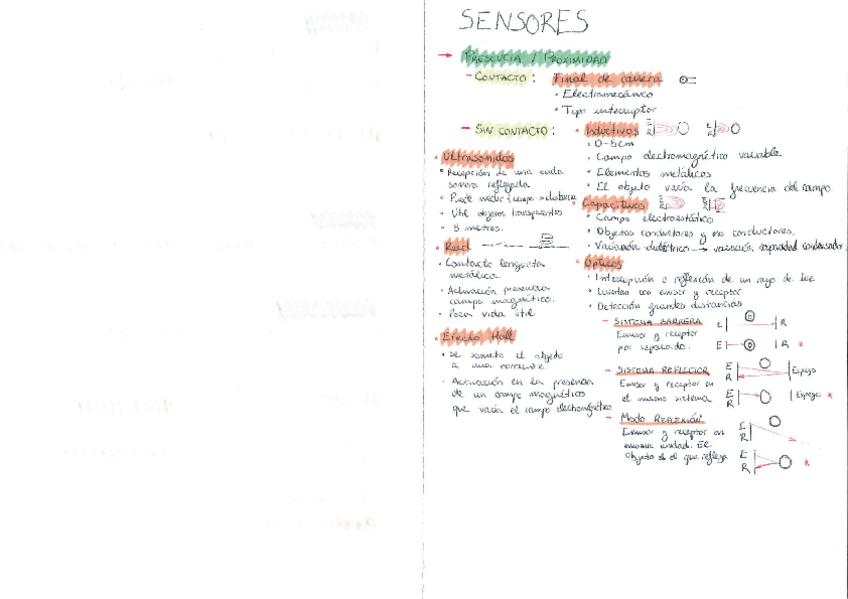 SENSORES
→ PRESENCIA / PROXIMIDAD
- CONTACTO: Final de carrera
• Electromecánico
• Tipo interruptor
- SIN CONTACTO:
• Inductivos
• 0-5cm
• Campo electromagnético variable
• Elementos metálicos
• El objeto varía la frecuencia del campo
• Capacitivos
• Campo electroestático
• Objetos conductores y no conductores.
• Variación dieléctrico → variación capacidad condensador.
• Ópticos
• Interrupción o reflexión de un rayo de luz
• Cuentan con emisor y receptor
• Detección grandes distancias
- SISTEMA BARRERA
Emisor y receptor
por separado.
E R
E R *
- SISTEMA REFLECTOR
Emisor y receptor en
el mismo sistema
E
R Espejo
E
R Espejo *
- Modo REFLEXIÓN
Emisor y receptor en
misma unidad. El
objeto es el que refleja
E
R
E
R *
• Ultrasonidos
• Recepción de una onda
sonora reflejada
• Puede medir tiempo o distancia
• Útil objetos transparentes
• 8 metros.
• Reed
• Contacto lengueta
metálica
• Activación presencia
campo magnético.
• Poca vida útil
• Efecto Hall
• Se somete el objeto
a una corriente.
• Activación en la presencia
de un campo magnético
que varía el campo electromagnético